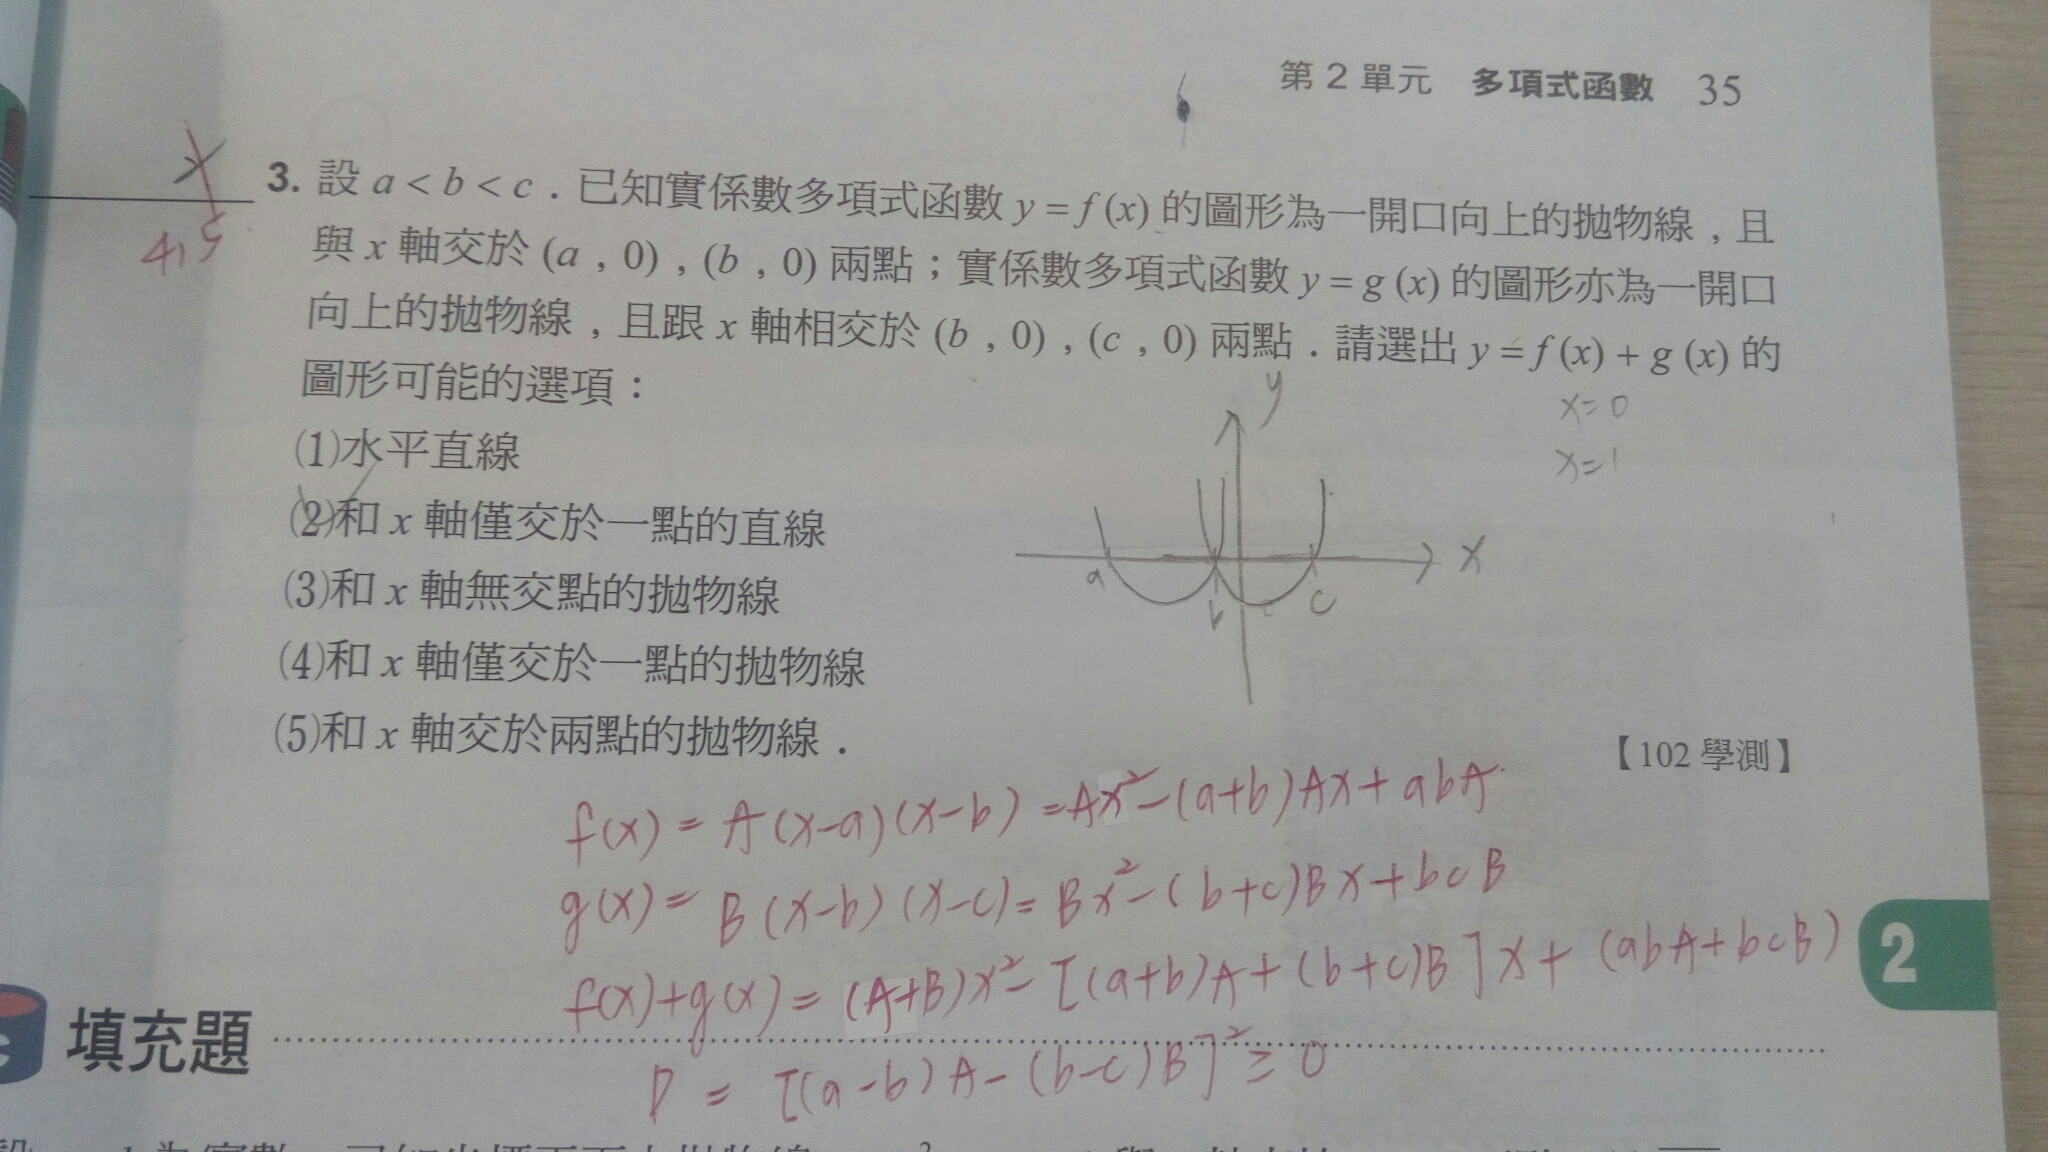 第 2 單元 多項式函數 35
3. 設 a < b < c．已知實係數多項式函數 y = f (x) 的圖形為一開口向上的拋物線，且
與 x 軸交於 (a , 0) , (b , 0) 兩點；實係數多項式函數 y = g (x) 的圖形亦為一開口
向上的拋物線，且跟 x 軸相交於 (b , 0) , (c , 0) 兩點．請選出 y = f (x) + g (x) 的
圖形可能的選項：
4,5
x=0
x=1
(1)水平直線
(2)和 x 軸僅交於一點的直線
(3)和 x 軸無交點的拋物線
(4)和 x 軸僅交於一點的拋物線
(5)和 x 軸交於兩點的拋物線．
y
x
a
b
c
【102 學測】
f(x) = A(x-a)(x-b) = Ax²-(a+b)Ax+abA
g(x) = B(x-b)(x-c) = Bx²-(b+c)Bx+bcB
f(x)+g(x) = (A+B)x²-[(a+b)A+(b+c)B]x+(abA+bcB)
2
填充題
D = [(a-b)A-(b-c)B]² ≥ 0